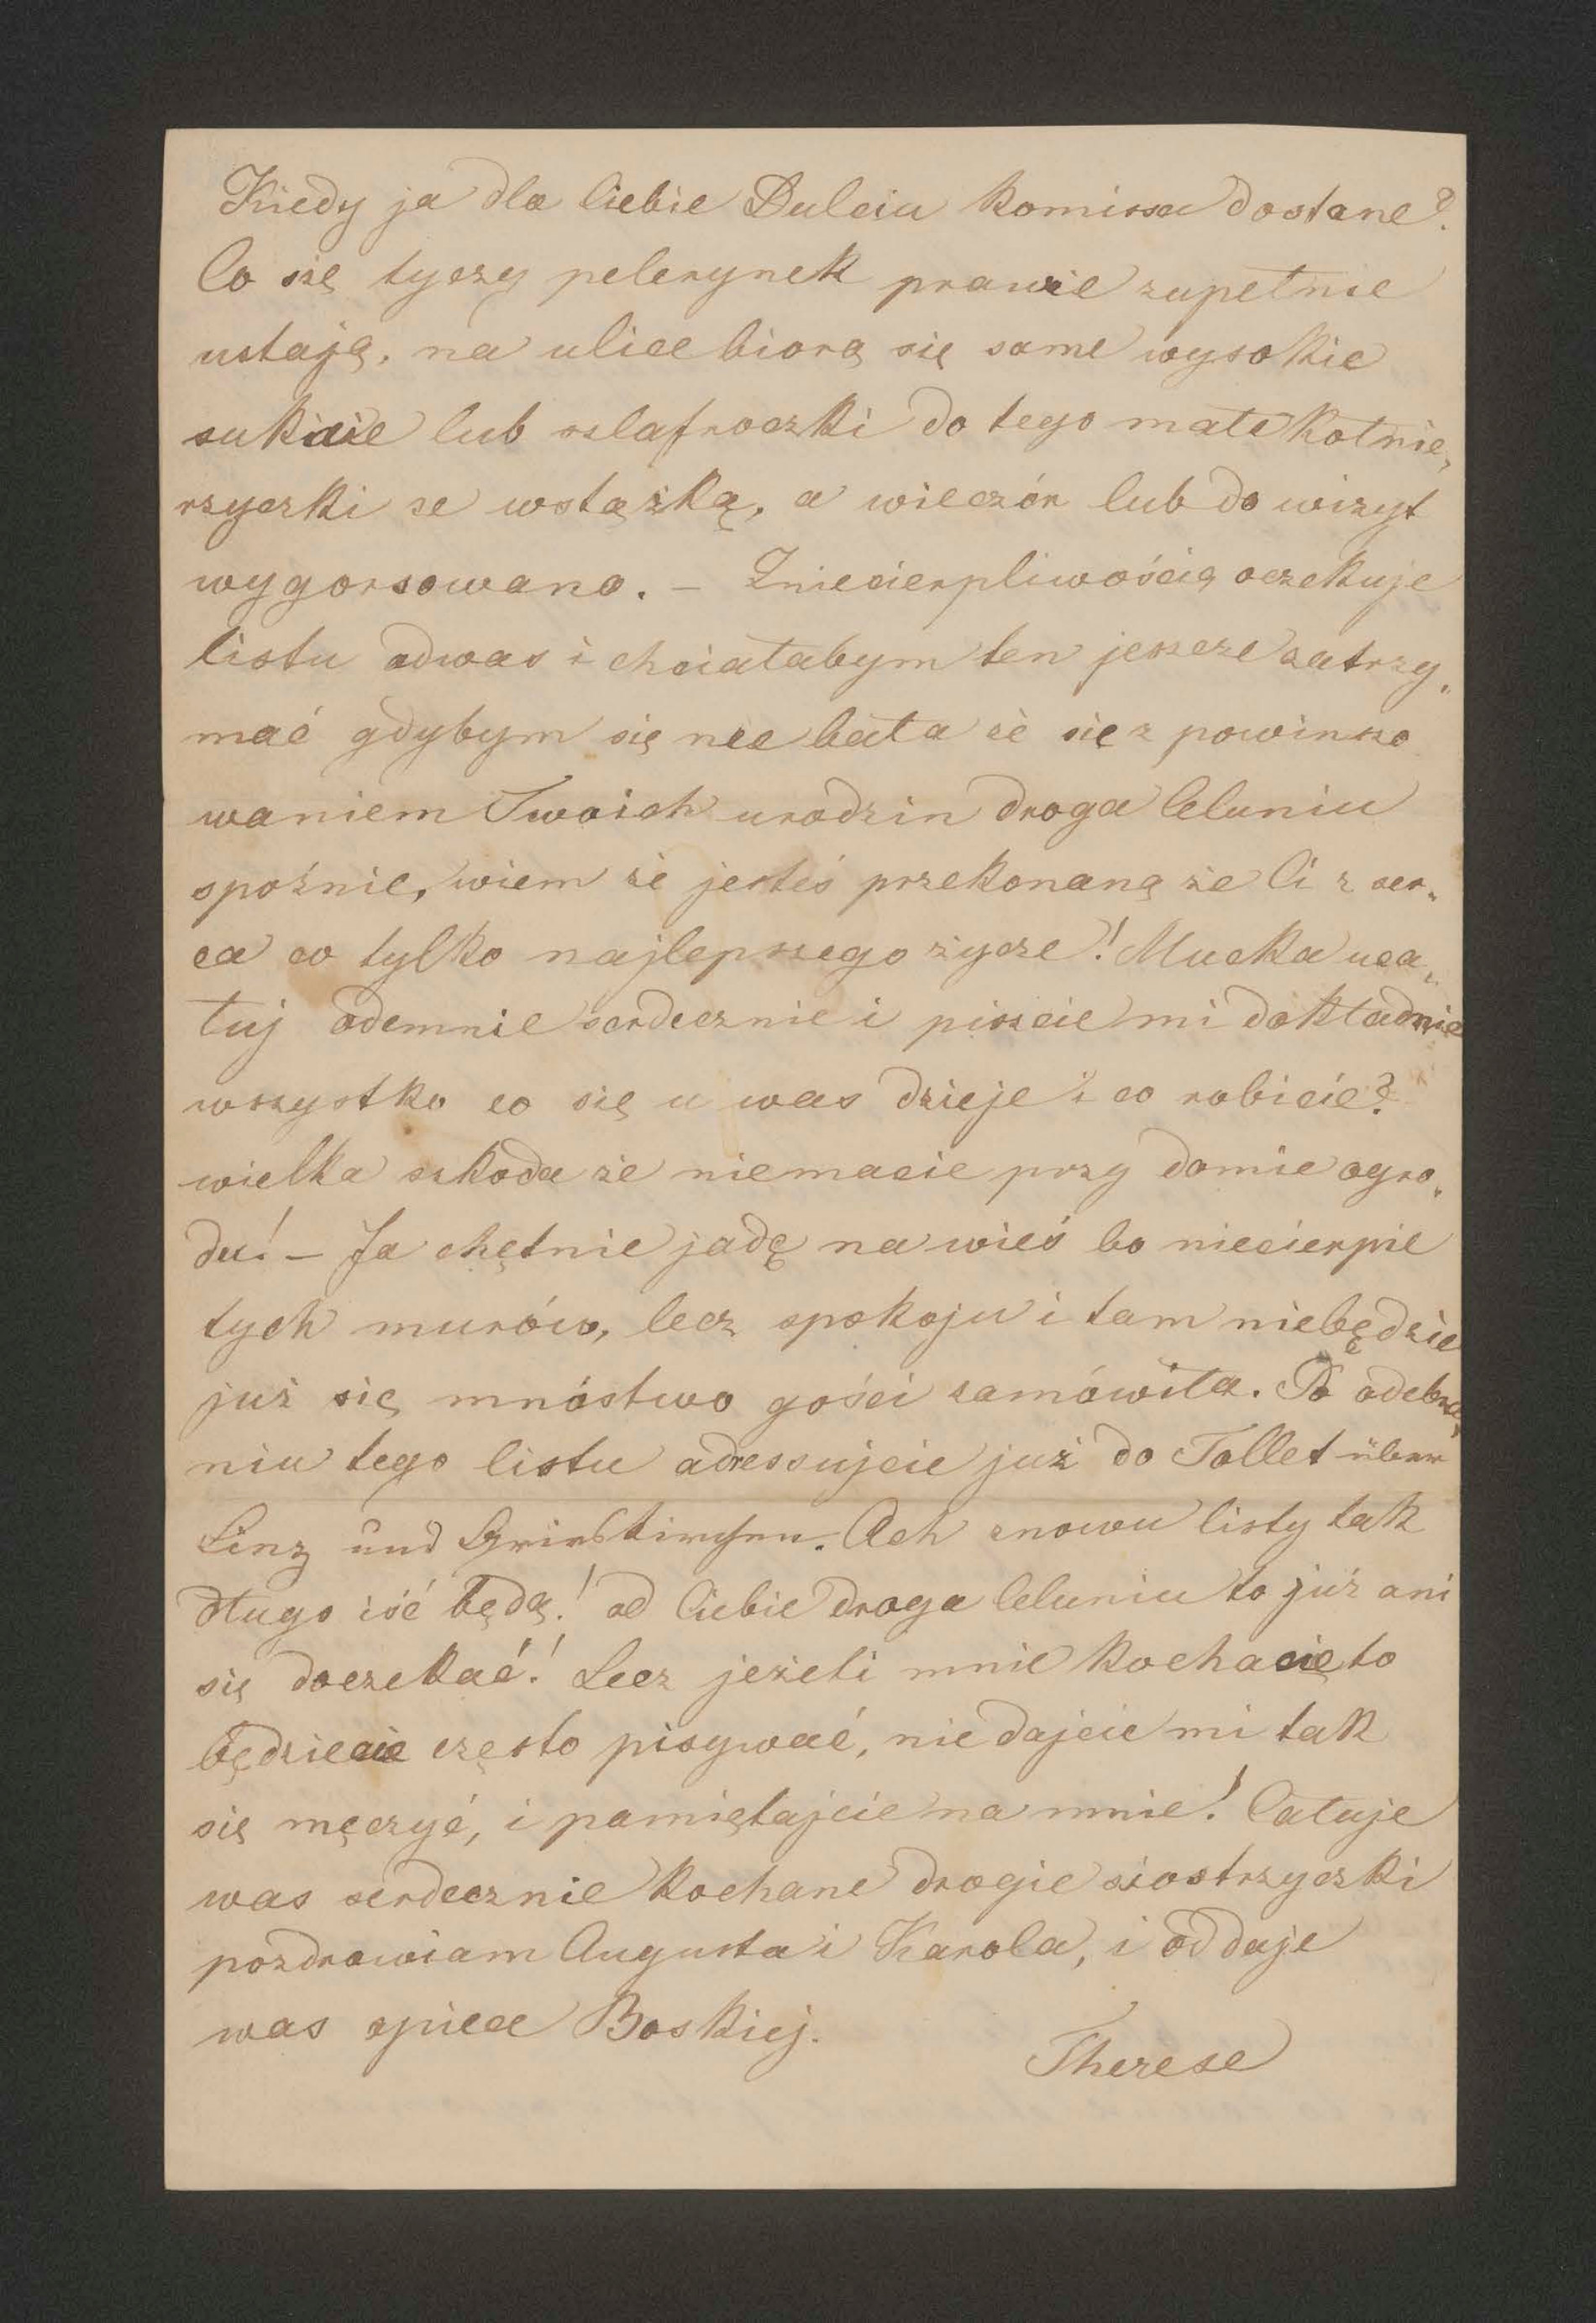 Kiedy ja dla Ciebie Dulciu komissa dostane?
Co się tyczy pelerynek prawie zupełnie
ustają, na ulice biorą się same wysokie
suknie lub szlafroczki do tego małe kołnie„
rzyczki ze wstążką, a wieczór lub do wizyt
wygorsowano. – Zniecierpliwością oczekuje
listu odwas i chciałabym ten jeszcze zatrzy„
mać gdybym się nie bała że się z powinszo
waniem Twoich urodzin droga Celuniu
spoźnie, wiem że jesteś przekonaną że Ci z ser„
ca co tylko najlepszego życze! Mucka uca„
łuj odemnie serdecznie i piszcie mi dokładnie
wszystko co się u was dzieje i co robicie?
wielka szkoda że niemacie przy domie ogro„
du! – Ja chętnie jadę na wieś bo niecierpie
tych murów, lecz spokoju i tam niebędzie
już się mnóstwo gości zamówiła. Po odebra„
niu tego listu adressujcie już do Tollet über
Linz und Grieskirchen. Ach znowu listy tak
długo iść będą! od Ciebie droga Celuniu to już ani
się doczekać! Lecz jeżeli mnie kochacie to
będziecie często pisywać, nie dajcie mi tak
się męczyć, i pamiętajcie na mnie! Całuje
was serdecznie kochane drogie siostrzyczki
pozdrawiam Augusta i Karola, i oddaje
was opiece Boskiej.
Therese